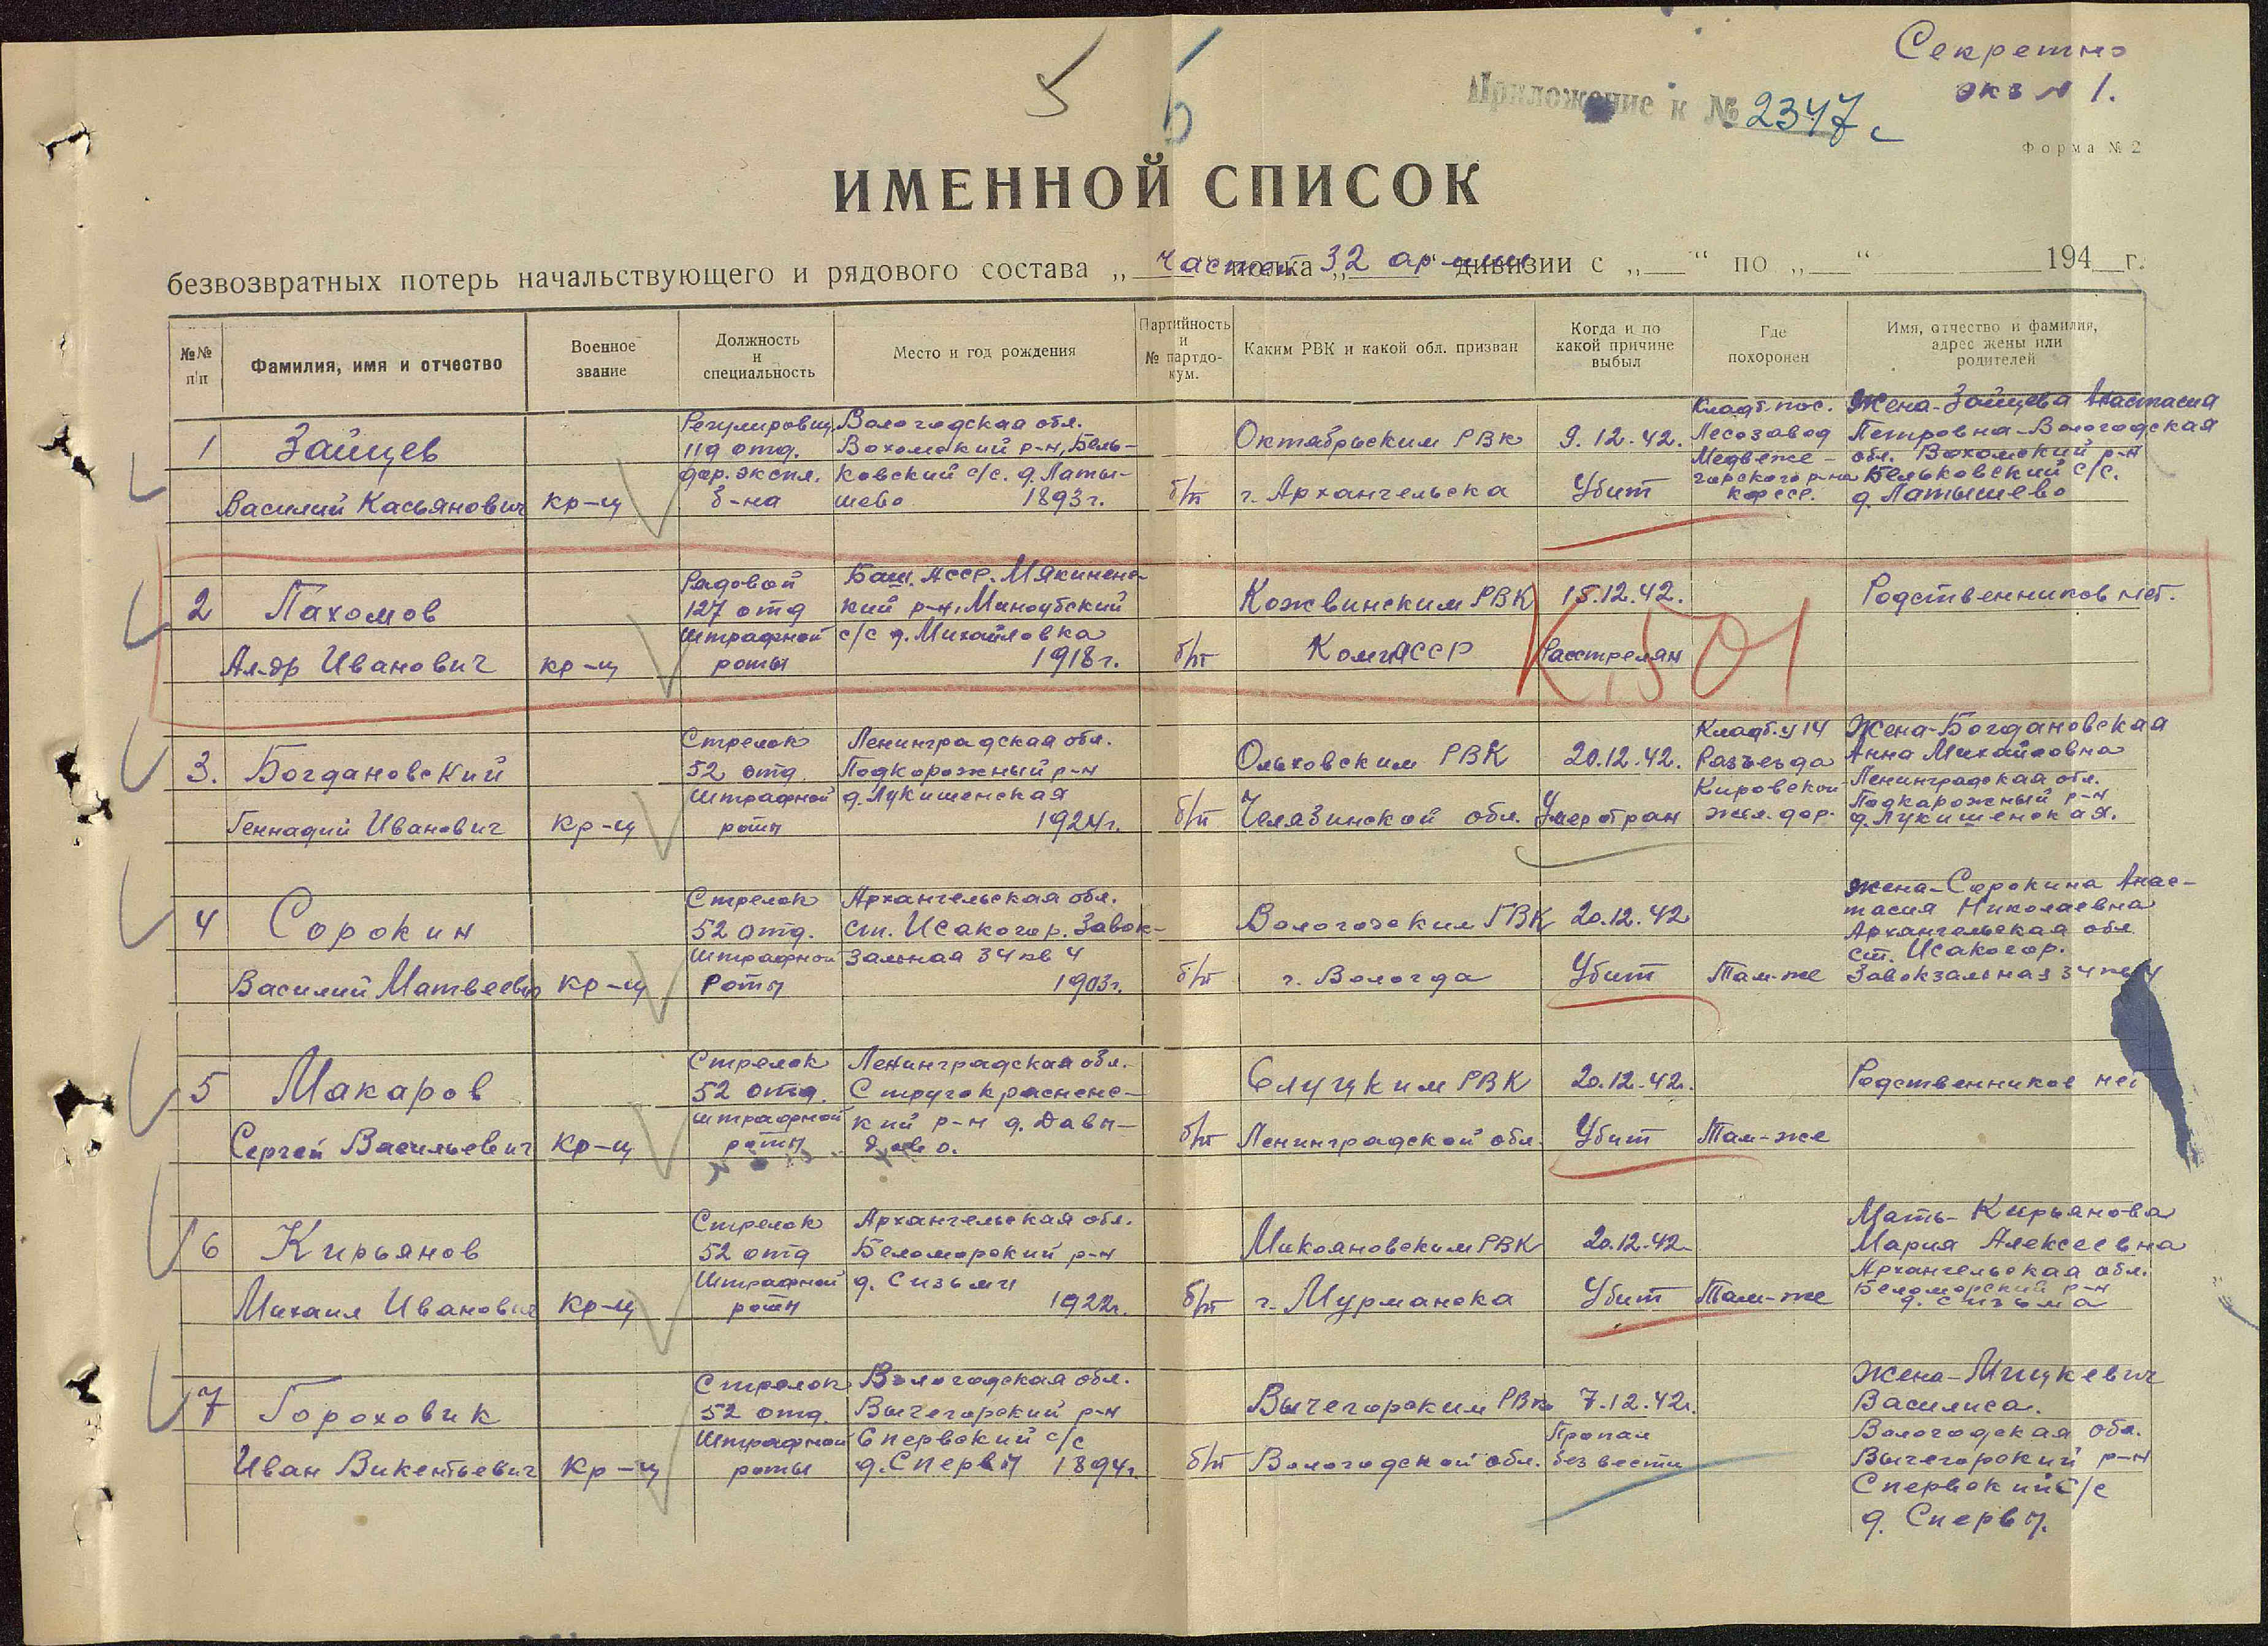 5
Секретно
экз № 1.
Приложение к № 2347с
Форма № 2
ИМЕННОЙ СПИСОК
безвозвратных потерь начальствующего и рядового состава „ частей полка „ 32 армии “ дивизии с „ “ по „ “ 194 г.
№№ п/п
Фамилия, имя и отчество
Военное
звание
Должность
и
специальность
Место и год рождения
Партийность
и
№ партдо-
кум.
Каким РВК и какой обл. призван
Когда и по
какой причине
выбыл
Где
похоронен
Имя, отчество и фамилия,
адрес жены или
родителей
1
Зайцев
Василий Касьянович
кр-ц
Регулировщ.
119 отд.
дор. экспл.
б-на
Вологодская обл.
Вохомский р-н, Бель-
ковский с/с. д. Латы-
шево 1893г.
б/п
Октябрьским РВК
г. Архангельска
9.12.42.
Убит
Кладб. пос.
Лесозавод
Медвеже-
горского р-на
КФССР.
Жена-Зайцева Анастасия
Петровна-Вологодская
обл. Вохомский р-н
Бельковский с/с.
д. Латышево
2
Пахомов
Ал-др Иванович
кр-ц
Рядовой
127 отд
штрафной
роты
Баш. АССР. Мякинс
кий р-н,
с/с д. Михайловка
1918г.
б/п
Кожвинским РВК
Коми АССР
15.12.42.
Расстрелян
К.501
Родственников нет.
3.
Богдановский
Геннадий Иванович
кр-ц
Стрелок
52 отд.
Штрафной
роты
Ленинградская обл.
Подкорожный р-н
д. Лукишенская
1924г.
б/п
Ольховским РВК
Челябинской обл.
20.12.42.
Умер от ран
Кладб. у 14
Разъезда
Кировской
жел. дор.
Жена-Богдановская
Анна Михайловна
Ленинградская обл.
Подкарожный р-н
д. Лукишенская.
4
Сорокин
Василий Матвеевич
кр-ц
Стрелок
52 отд.
Штрафной
Роты
Архангельская обл.
ст. Исакогор. Завок-
зальная 34 кв 4
1903г.
б/п
Вологодским ГВК
г. Вологда
20.12.42
Убит
Там-же
Жена-Сорокина Анас-
тасия Николаевна
Архангельская обл
ст. Исакогор.
Завокзальная 34 кв 4
5
Макаров
Сергей Васильевич
кр-ц
Стрелок
52 отд.
штрафной
роты
Ленинградская обл.
Стругокрасненс-
кий р-н д. Давы-
дово.
б/п
Слуцким РВК
Ленинградской обл.
20.12.42.
Убит
Там-же
Родственников нет
6
Кирьянов
Михаил Иванович
кр-ц
Стрелок
52 отд
Штрафной
роты
Архангельская обл.
Беломорский р-н
д. Сизьмы
1922г.
б/п
Микояновским РВК
г. Мурманска
20.12.42
Убит
Там-же
Мать-Кирьянова
Мария Алексеевна
Архангельская обл.
Беломорский р-н
д. Сизьма
7
Гороховик
Иван Викентьевич
кр-ц
Стрелок
52 отд.
Штрафной
роты
Вологодская обл.
Вычегорский р-н
Спервский с/с
д. Спервы 1894г.
б/п
Вычегорским РВК
Вологодской обл.
7.12.42г.
Пропал
без вести
Жена-Мицкевич
Василиса.
Вологодская обл.
Вычегорский р-н
Спервский с/с
д. Спервы.